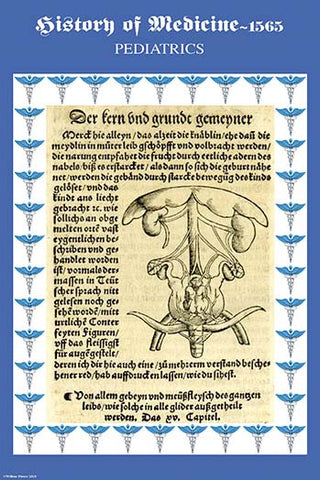 History of Medicine~1565
PEDIATRICS
Der kern vnd grundt gemeyner
Merck hie alleyn / das alzeit die knäblin / ehe daß die
meydlin in můter leib gschöpfft vnd volbracht werden /
die narung entpfahet die frucht durch ettliche adern des
nabels / biß es erstarcket / als dann so sich die geburt nähe
net / werden die gebänd durch starcke bewegūg des kinds
gelöset / vnd das
kindt ans liecht
gebracht ꝛc. wie
sollichs an obge
melten orte vast
eygentlichen be-
schriben vnd ge-
handlet worden
ist / vormals der-
massen in Teüt
scher sprach nitt
gelesen noch ge-
sehē wordē / mitt
türtliche Conter
feyten Figuren /
vff das fleissigst
für augē gestelt /
deren ich dir hie auch eine / zů mehrem verstand besche-
hener red / hab auffdrucken lassen / wie du sihest.
Von allem gebeyn vnd meüßfleysch des gantzen
leibs / wie solche in alle glider außgetheilt
werden. Das xv. Capitel.